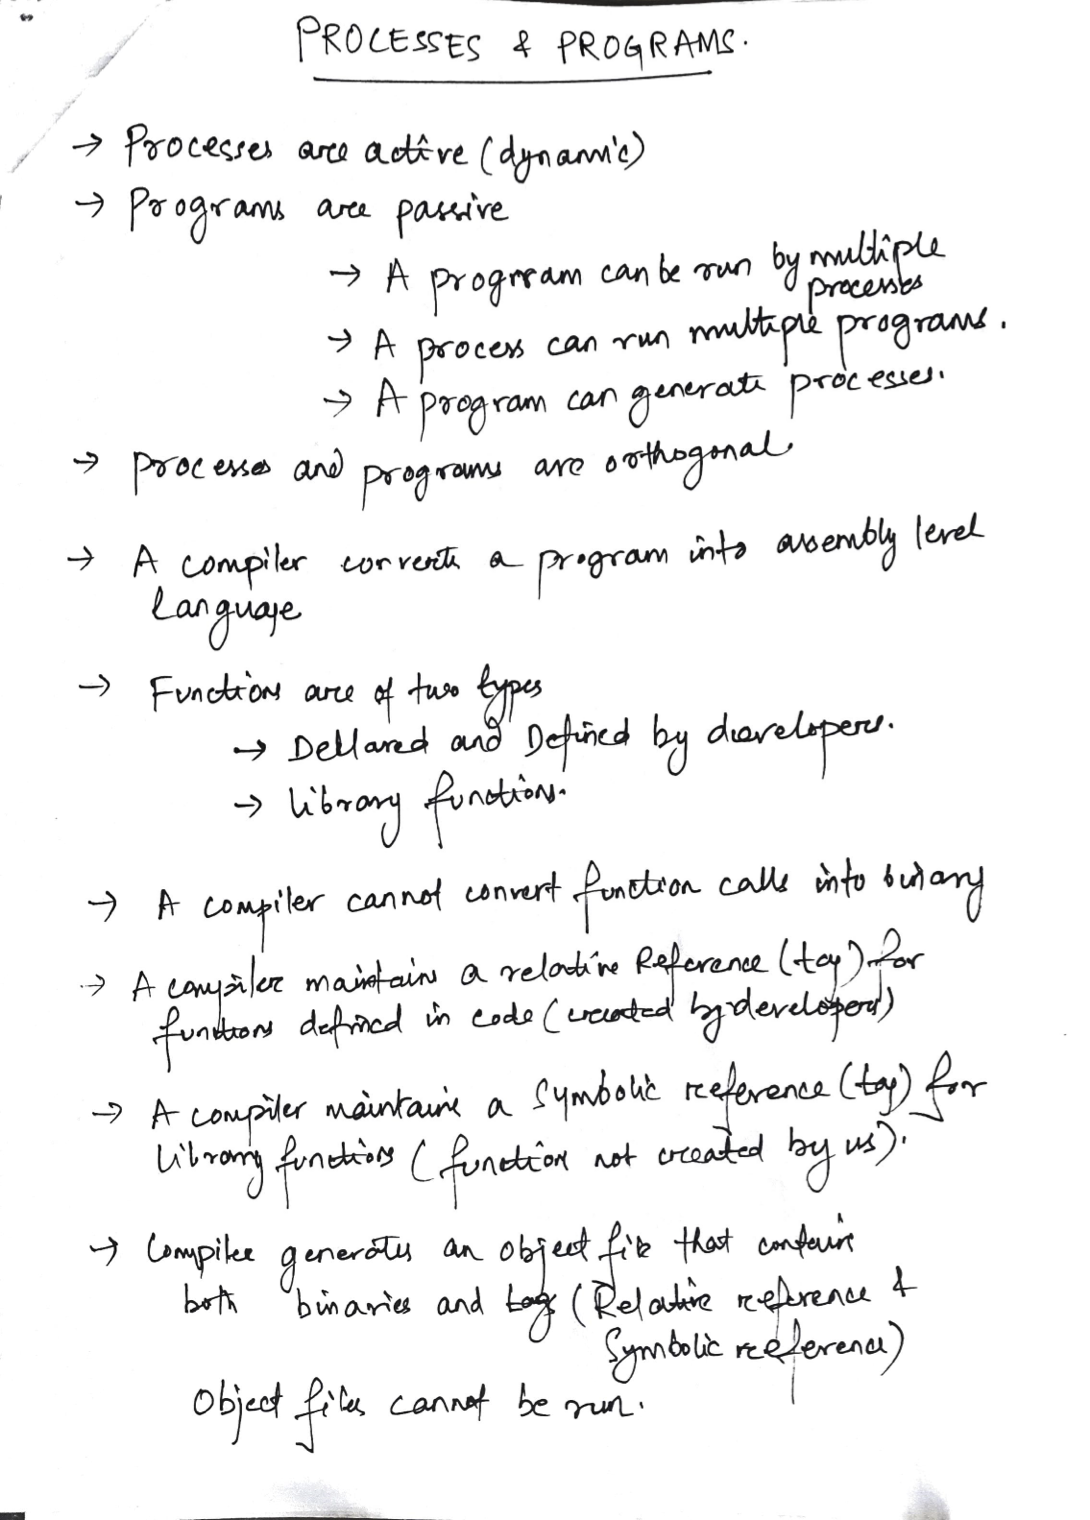 PROCESSES & PROGRAMS.
→ Processes are active (dynamic)
→ Programs are passive
→ A program can be run by multiple
processes
→ A process can run multiple programs.
→ A program can generate processes.
→ processes and programs are orthogonal
→ A compiler converts a program into assembly level
language
→ Functions are of two types
→ Dellared and Defined by developers.
→ library functions.
→ A compiler cannot convert function calls into binary
→ A compiler maintains a relative Reference (tag) for
functions defined in code (created by developers)
→ A compiler maintains a Symbolic reference (tag) for
library functions (function not created by us).
→ Compiler generates an object file that contains
both binaries and tags (Relative reference &
Symbolic reference)
Object files cannot be run.